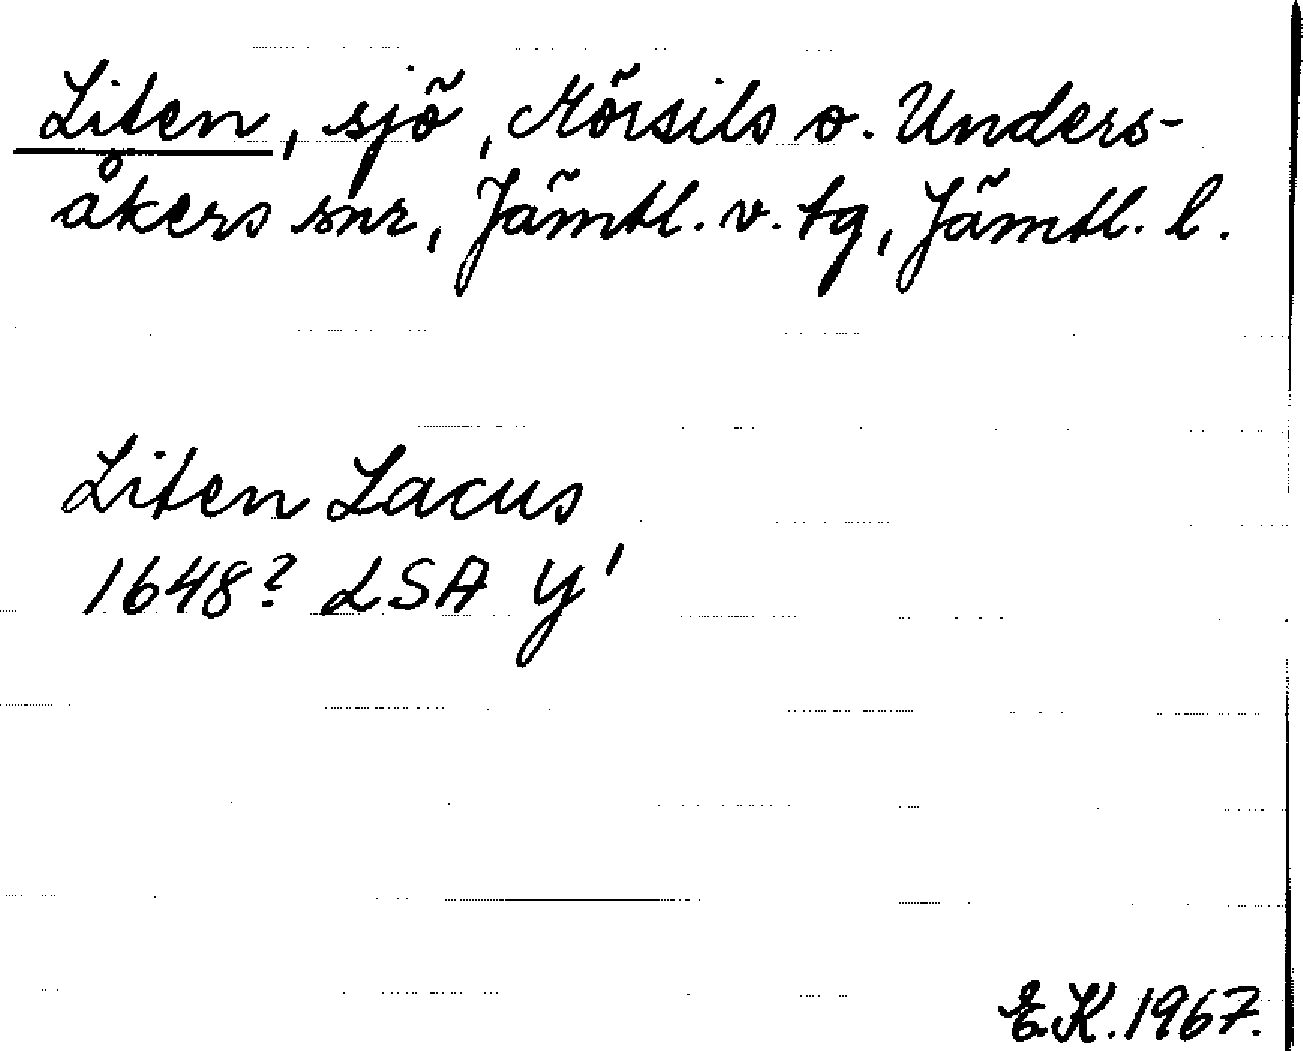 Liten, sjö, Mörsils o. Unders-
åkers snr, Jämtl. v. tg, Jämtl. l.
Liten Lacus
1648? LSA Y'
E.K. 1967.